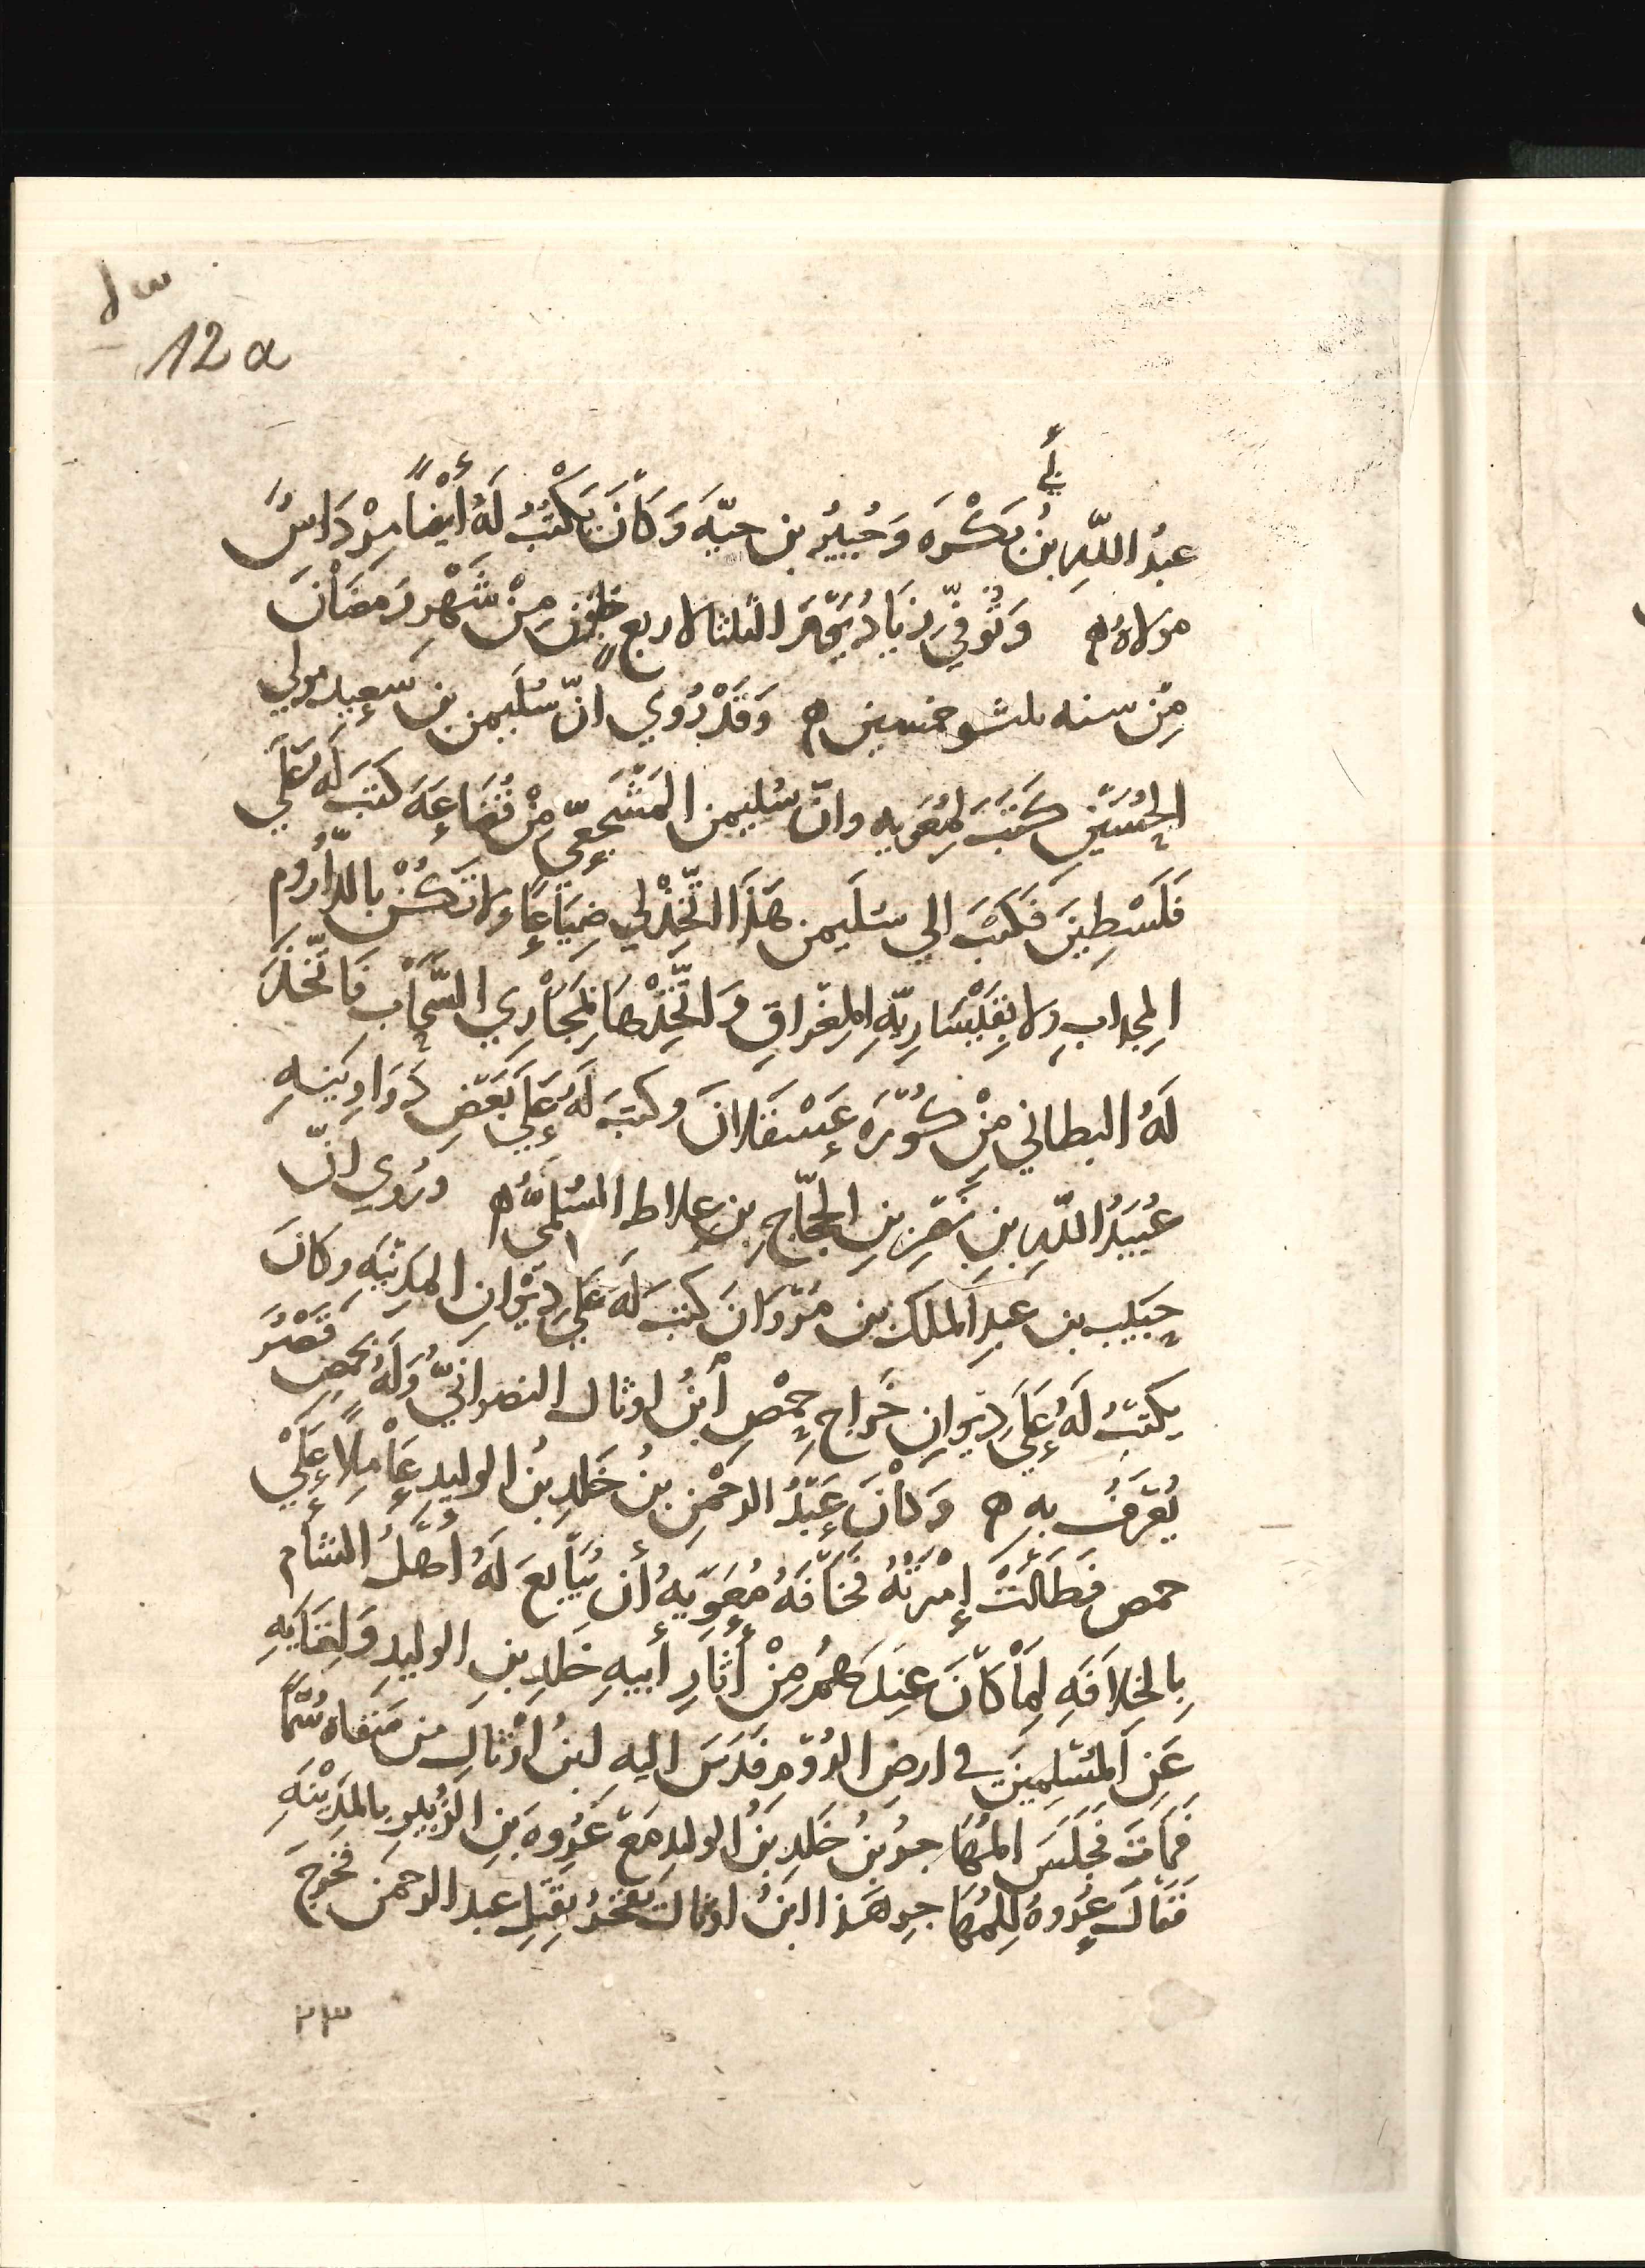 ١٣
12 a
أبي
عبدُ اللّهِ بنُ بَكْرَه وَجُبَيرُ بن حيّه وَكَانَ يَكْتُبُ لَهُ أيْضاً مِرْدَاسٌ
مولاهُ ه وَتُوفيّ زيَادُ يَوْمَ الثلثا لاربع خلَوْنَ مِنْ شَهْرِ رَمَضَانَ
مِنْ سنه ثلث وخمسين ه وَقَدْ رُوي انّ سُلَيمن بن سَعِيد مولي
الحُسَيْنِ كَتَبَ لِمُعَويه وانّ سُليمن المَشْجَعِيّ مِنْ قُضَاعَهَ كتبَ له عَلَي
فَلَسْطِينَ فَكَتَبَ الي سلَيمن هَذَا اتّخِذْ لي ضِيَاعاً ولا تَكُنْ بالدَّارُوم
المجدابِ ولا بقَيْسَارِيّهِ المِغْرَاقِ وَاتّخِذْهَا بمَجَارِي السَّحَابِ فَاتّخذَ
لَهُ البطاني مِنْ كُوْرَه عَسْقَلانَ وكتبَ لَهُ عَلَي بَعْضِ دَوَاوِينِهِ
عُبَيدُ اللّهِ بنِ نَصْرِ بنِ الحجّاجِ بنِ علاط السُلَميُّ ه ورُوي انّ
حَبَيب بن عبدِ الملك بن مَرْوَانَ كتبَ لَهَ عَلَي دِيْوانِ المَدِيْنَه وكانَ
يكتبُ لَهُ عَلَي دِيْوانِ خَرَاجِ حِمْصِ أبنُ اوثال النصرانيّ وَلَهُ بحمص قصْرُ
يُعْرَفُ بهِ ه وَكَانَ عَبْدُ الرحْمَنِ بنُ خَلدِ بنُ الوليدِ عَاْمِلاً عَلَيْ
حمص فطَالَتْ إمْرَتُهُ فخَافَهُ مُعَوِيهُ أن يُبَايعَ لَهُ أهْلُ الشأم
بِالخِلاَفَهِ لِمَا كَانَ عِندَهُمْ مِنْ أثَارِ أبيهِ خلدِ بنِ الوليدِ وَلِغَنَايهِ
عَنِ المُسْلِمِينَ في ارضِ الرُوْمِ فَدَسَ اليه ابنُ اوْثالِ من سَقاه سُمّاً
فمَاتَ فجَلَسَ المُهَاجرُ بنُ خَلدِ بنُ الوليدِ مَعَ عُرْوهَ بنِ الزُبيرِ بالمَدِيْنَهِ
فقَالَ عُرْوهُ لِلمُهَاجرِ هَذا ابنُ اوثال يفْخَرُ بقَتلِ عبد الرحمن فخَرَجَ
٢٣